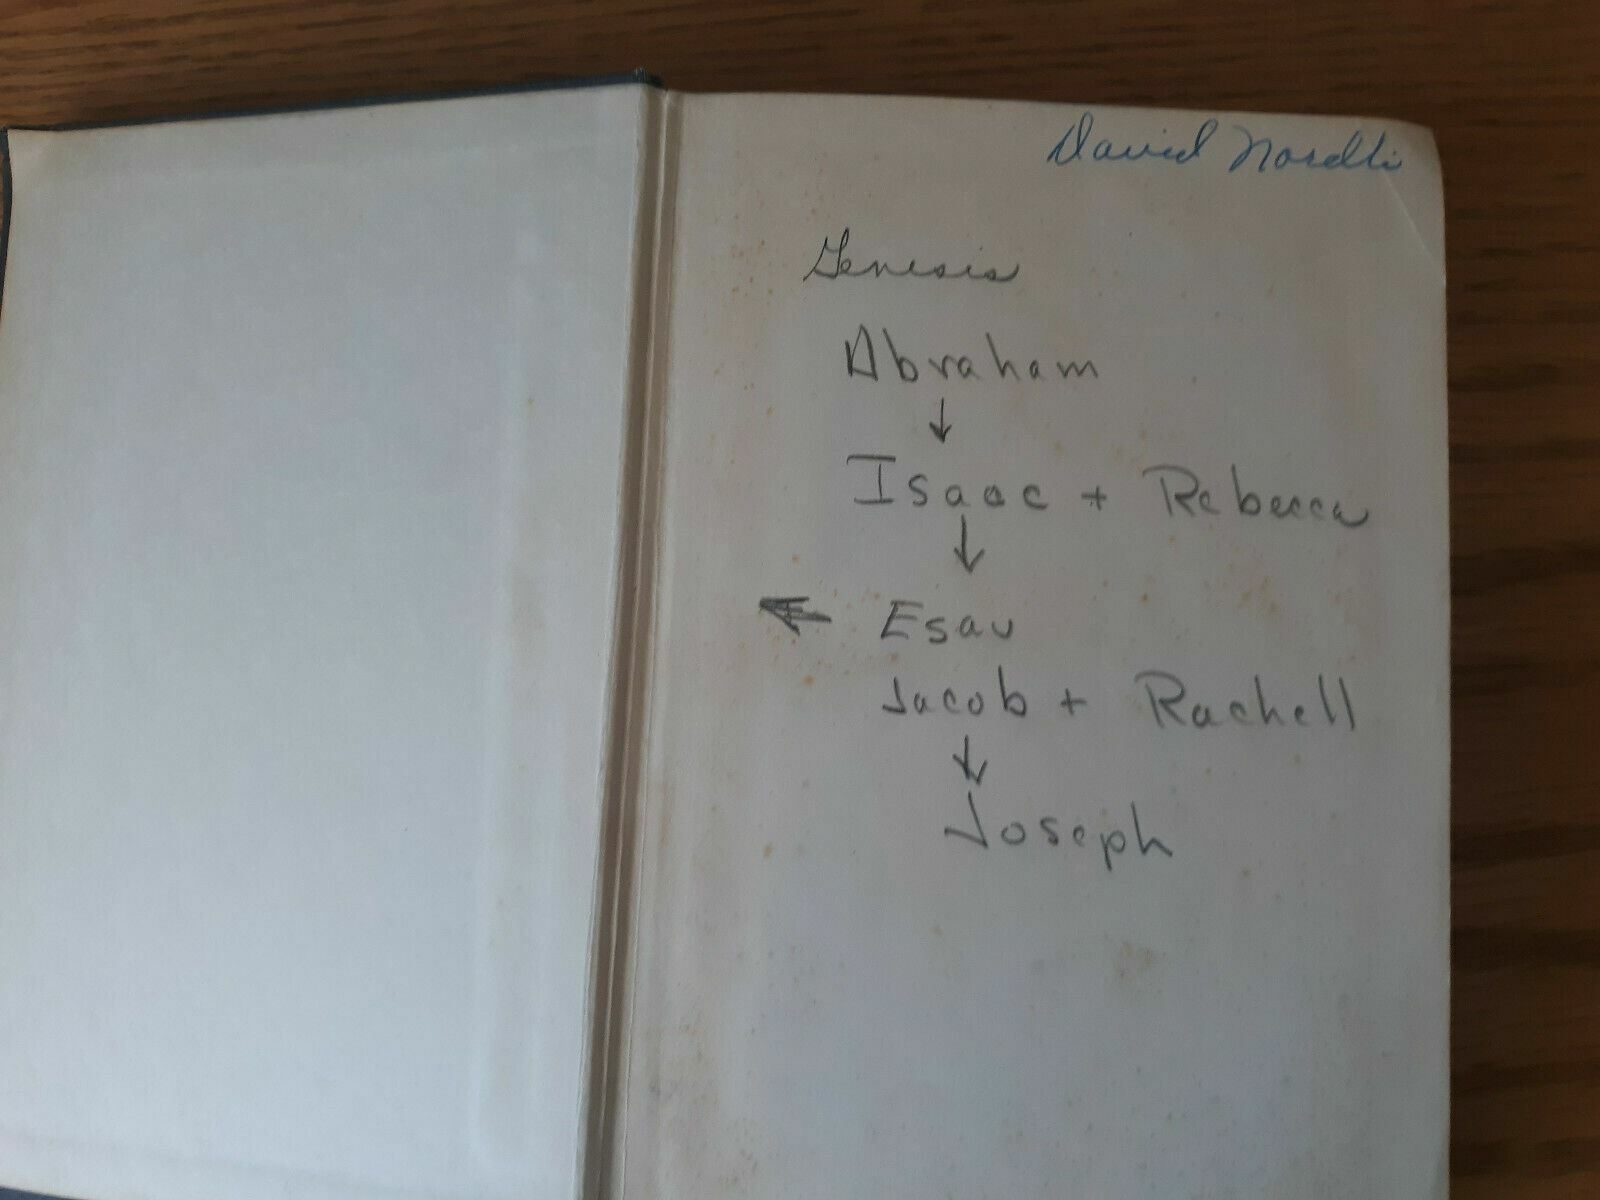 David
Genesis
Abraham
↓
Isaac + Rebecca
↓
← Esau
Jacob + Rachell
↓
Joseph